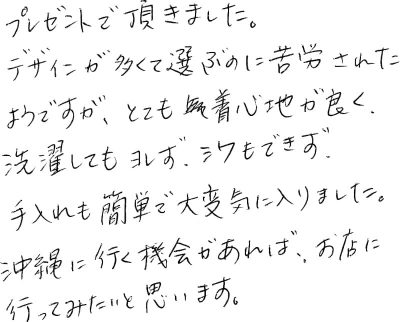 プレゼントで頂きました。
デザインが多くて選ぶのに苦労された
ようですが、とても着心地が良く、
洗濯してもヨレず、シワもできず、
手入れも簡単で大変気に入りました。
沖縄に行く機会があれば、お店に
行ってみたいと思います。